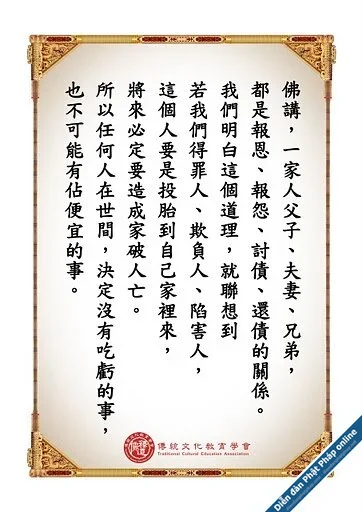 佛講，一家人父子、夫妻、兄弟，
都是報恩、報怨、討債、還債的關係。
我們明白這個道理，就聯想到
若我們得罪人、欺負人、陷害人，
這個人要是投胎到自己家裡來，
將來必定要造成家破人亡。
所以任何人在世間，決定沒有吃虧的事，
也不可能有佔便宜的事。
傳統文化教育學會
Traditional Cultural Education Association
Diễn đàn Phật Pháp online